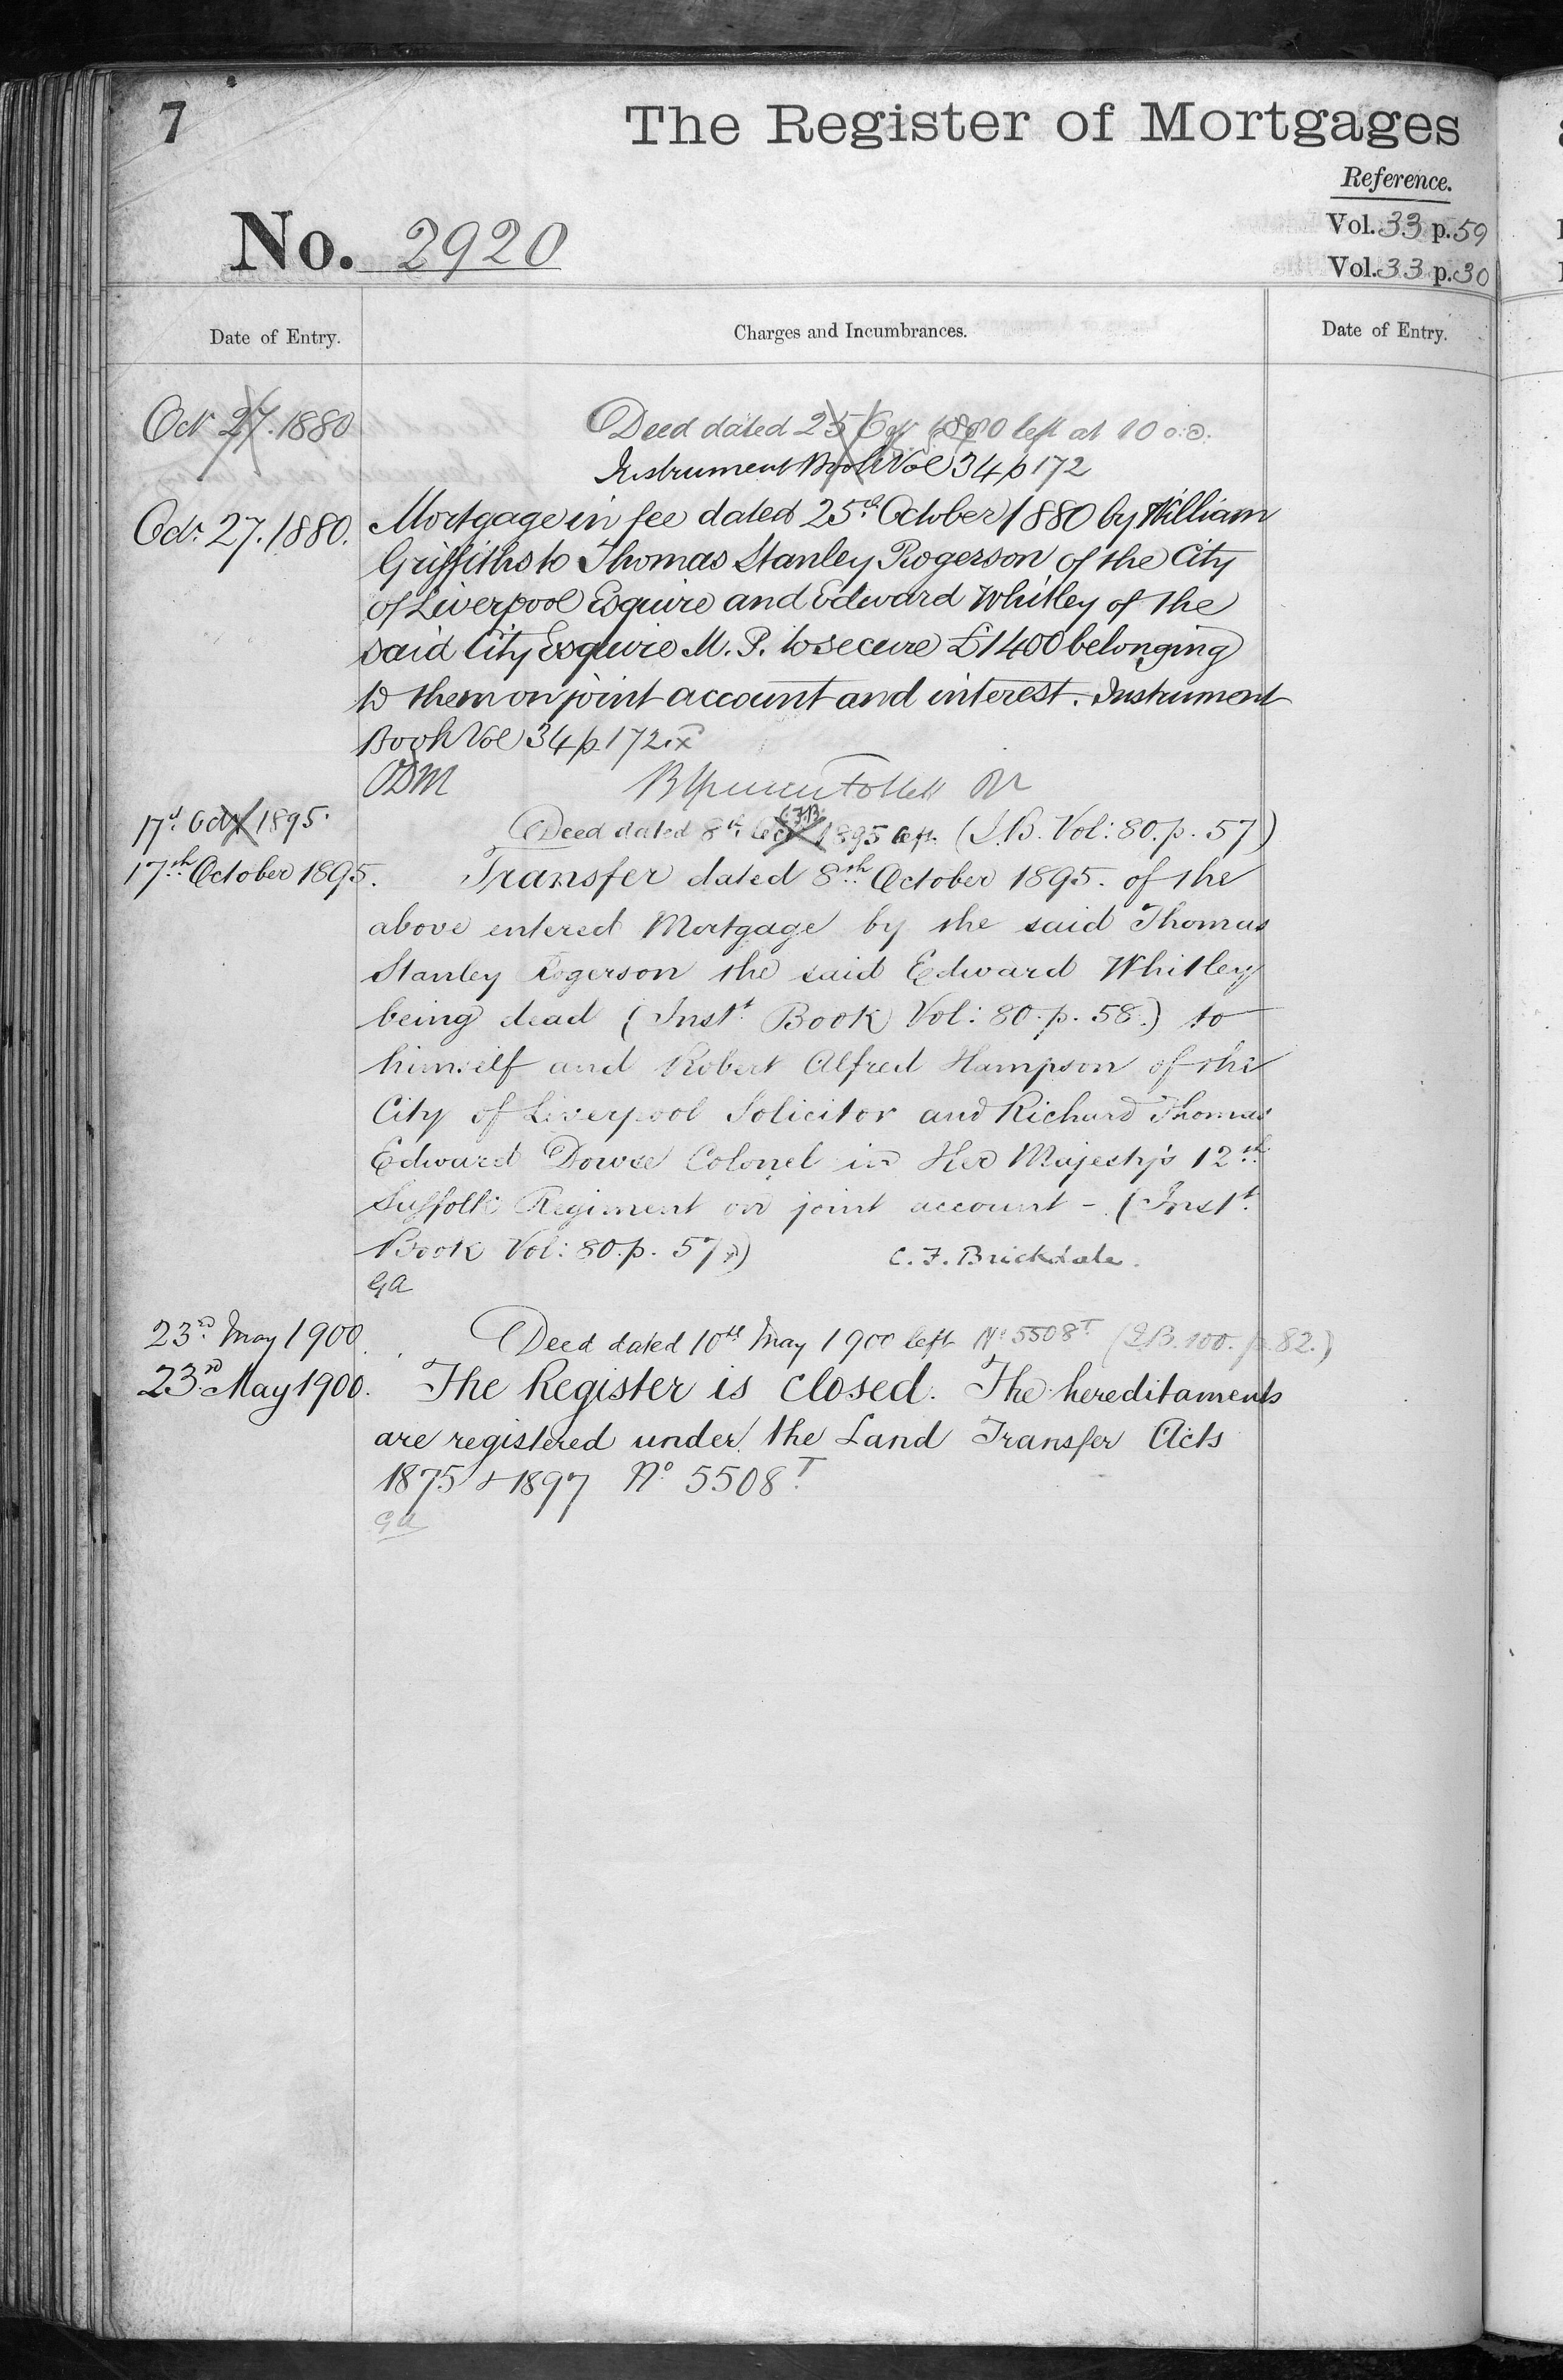 7
The Register of Mortgages
Reference.
No. 2920
Vol. 33 p. 59
Vol. 33 p. 30
Date of Entry.
Charges and Incumbrances.
Date of Entry.
Oct 27. 1880
Deed dated 25 Oct 1880 left at 10 o.c.
Instrument Book Vol 34 p 172
Oct. 27. 1880.
Mortgage in fee dated 25th October 1880 by William
Griffiths to Thomas Stanley Rogerson of the City
of Liverpool Esquire and Edward Whitley of the
said City Esquire M. P. to secure £1400 belonging
to them on joint account and interest. Instrument
Book Vol 34 p. 172.
ODM
Follett
17th Oct 1895.
C.F.B.
Deed dated 8th Oct 1895 left. (I.B. Vol: 80. p. 57)
17th October 1895.
Transfer dated 8th October 1895. of the
above entered Mortgage by the said Thomas
Stanley Rogerson the said Edward Whitley
being dead (Instt Book Vol: 80. p. 58.) to
himself and Robert Alfred Hampson of the
City of Liverpool Solicitor and Richard Thomas
Edward Dowse Colonel in Her Majesty's 12th
Suffolk Regiment on joint account - (Instt
Book Vol: 80. p. 57)
C. F. Brickdale.
GA
23rd May 1900.
Deed dated 10th May 1900 left No 5508T (I.B. 100. p. 82.)
23rd May 1900.
The Register is closed. The hereditaments
are registered under the Land Transfer Acts
1875 & 1897 No 5508T
GA